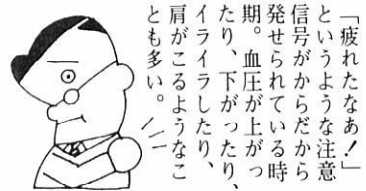 「疲れたなあ!」
というような注意
信号がからだから
発せられている時
期。血圧が上がっ
たり、下がったり、
イライラしたり、
肩がこるようなこ
とも多い。